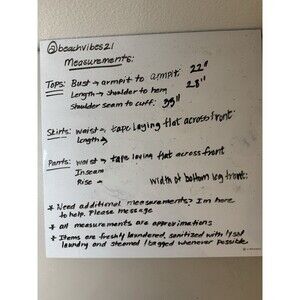 @beachvibes21
Measurements:
Tops: Bust → armpit to armpit: 22"
Length → shoulder to hem 28"
Shoulder seam to cuff:
Skirts: waist → tape laying flat across front
Length →
Pants: waist → tape laying flat across front
Inseam
Rise → width of bottom leg front:
* Need additional measurements? Im here
to help. Please message
* all measurements are approximations
* Items are freshly laundered, sanitized with lysol
laundry and steamed / bagged whenever possible